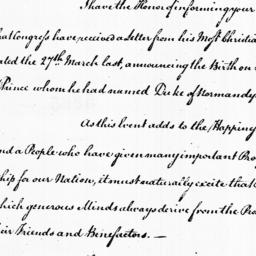 I have the Honor of informing your
hat Congress have received a Letter from his Most Christia
ated the 27th. March last, announcing the Birth on
Prince whom he had named Duke of Normandy
As this Event adds to the Happin
nd a People who have given many important Pro
ship for our Nation, it must naturally excite that
which generous Minds always derive from the
eir Friends and Benefactors. —